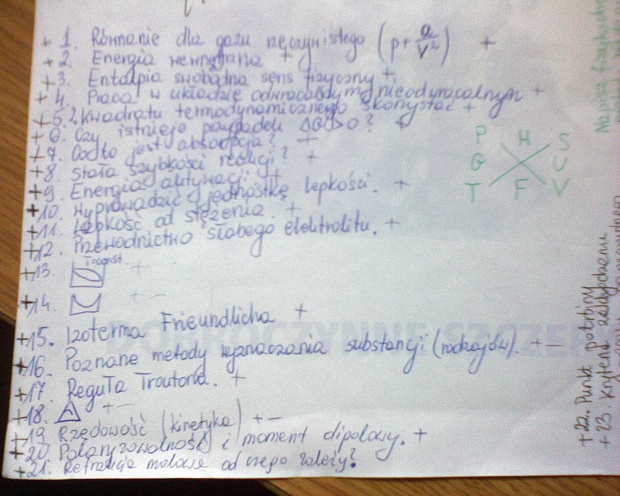 + 1. Równanie dla gazu rzeczywistego (p + a/V²) +
+ 2. Energia wewnętrzna +
+ 3. Entalpia swobodna sens fizyczny +
+ 4. Praca w układzie odwracalnym i nieodwracalnym +
+ 5. Z kwadratu termodynamicznego skorzystać +
+ 6. Czy istnieje przypadek ΔG > 0? +
+ 7. Co to jest absorbcja? +
+ 8. Stała szybkości reakcji? +
+ 9. Energia aktywacji +
+ 10. Wyprowadzić jednostkę lepkości. +
+ 11. Lepkość od stężenia. +
+ 12. Przewodnictwo słabego elektrolitu. +
+ 13. +
+ 14. + -
+ 15. Izoterma Freundlicha +
+ 16. Poznane metody wyznaczania substancji (rodzajów). + -
+ 17. Reguła Troutona. +
+ 18. + -
+ 19. Rzędowość (kinetyka) + -
+ 20. Polaryzowalność i moment dipolowy. +
+ 21. Refrakcja molowa od czego zależy?
P H S
G U
T F V
+ 22. Punkt potrójny
+ 23. Kryteria
DOBROCZYNNE